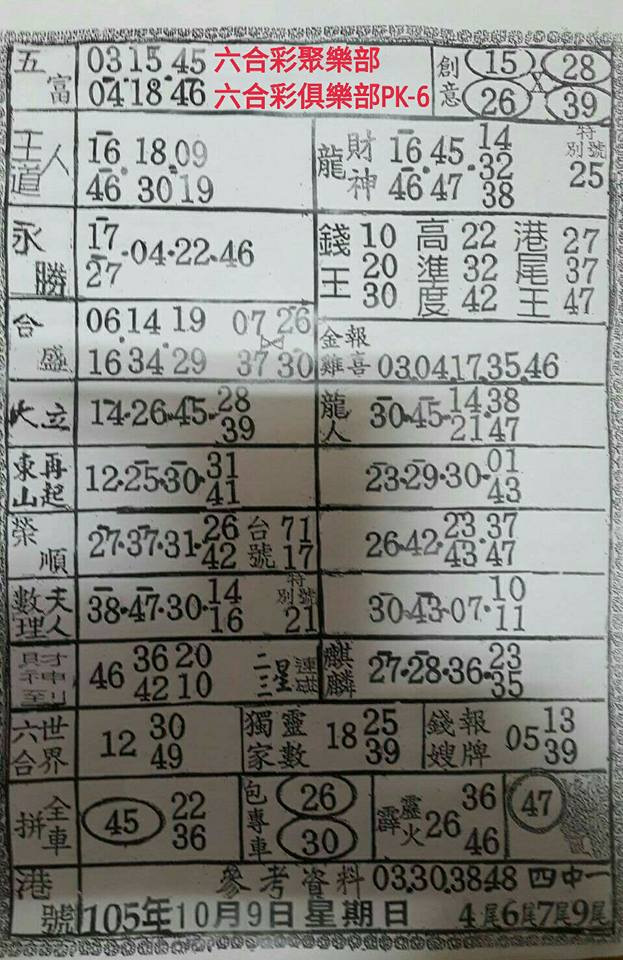 五富 03 15 45 六合彩聚樂部
04 18 46 六合彩俱樂部PK-6
創意 15 28
X
26 39
王人道 16 18 09
46 30 19
龍財神 16 45 14
32
46 47 38
特別號 25
永勝 17
27 04 22 46
錢王 10 20 30
高準度 22 32 42
港尾王 27 37 47
合盛 06 14 19 07 26
16 34 29 37 30
金雞報喜 03.04.17.35.46
大立 14 26 45 28
39
龍人 30 45 14 38
21 47
東山再起 12 25 30 31
41
23 29 30 01
43
榮順 27 37 31 26
42
台號 71
17
26 42 23 37
43 47
數理夫人 38 47 30 14
16
特別號 21
30 43 07 10
11
財神到 46 36 20
42 10
二三星連碰
麒麟 27 28 36 23
35
六合世界 12 30
49
獨家靈數 18 25
39
錢嫂報牌 05 13
39
拼全車 45 22
36
包專車 26
30
霹靂火 26 36
46
47
港號 參考資料 03.30.38.48 四中一
105年10月9日星期日 4尾6尾7尾9尾